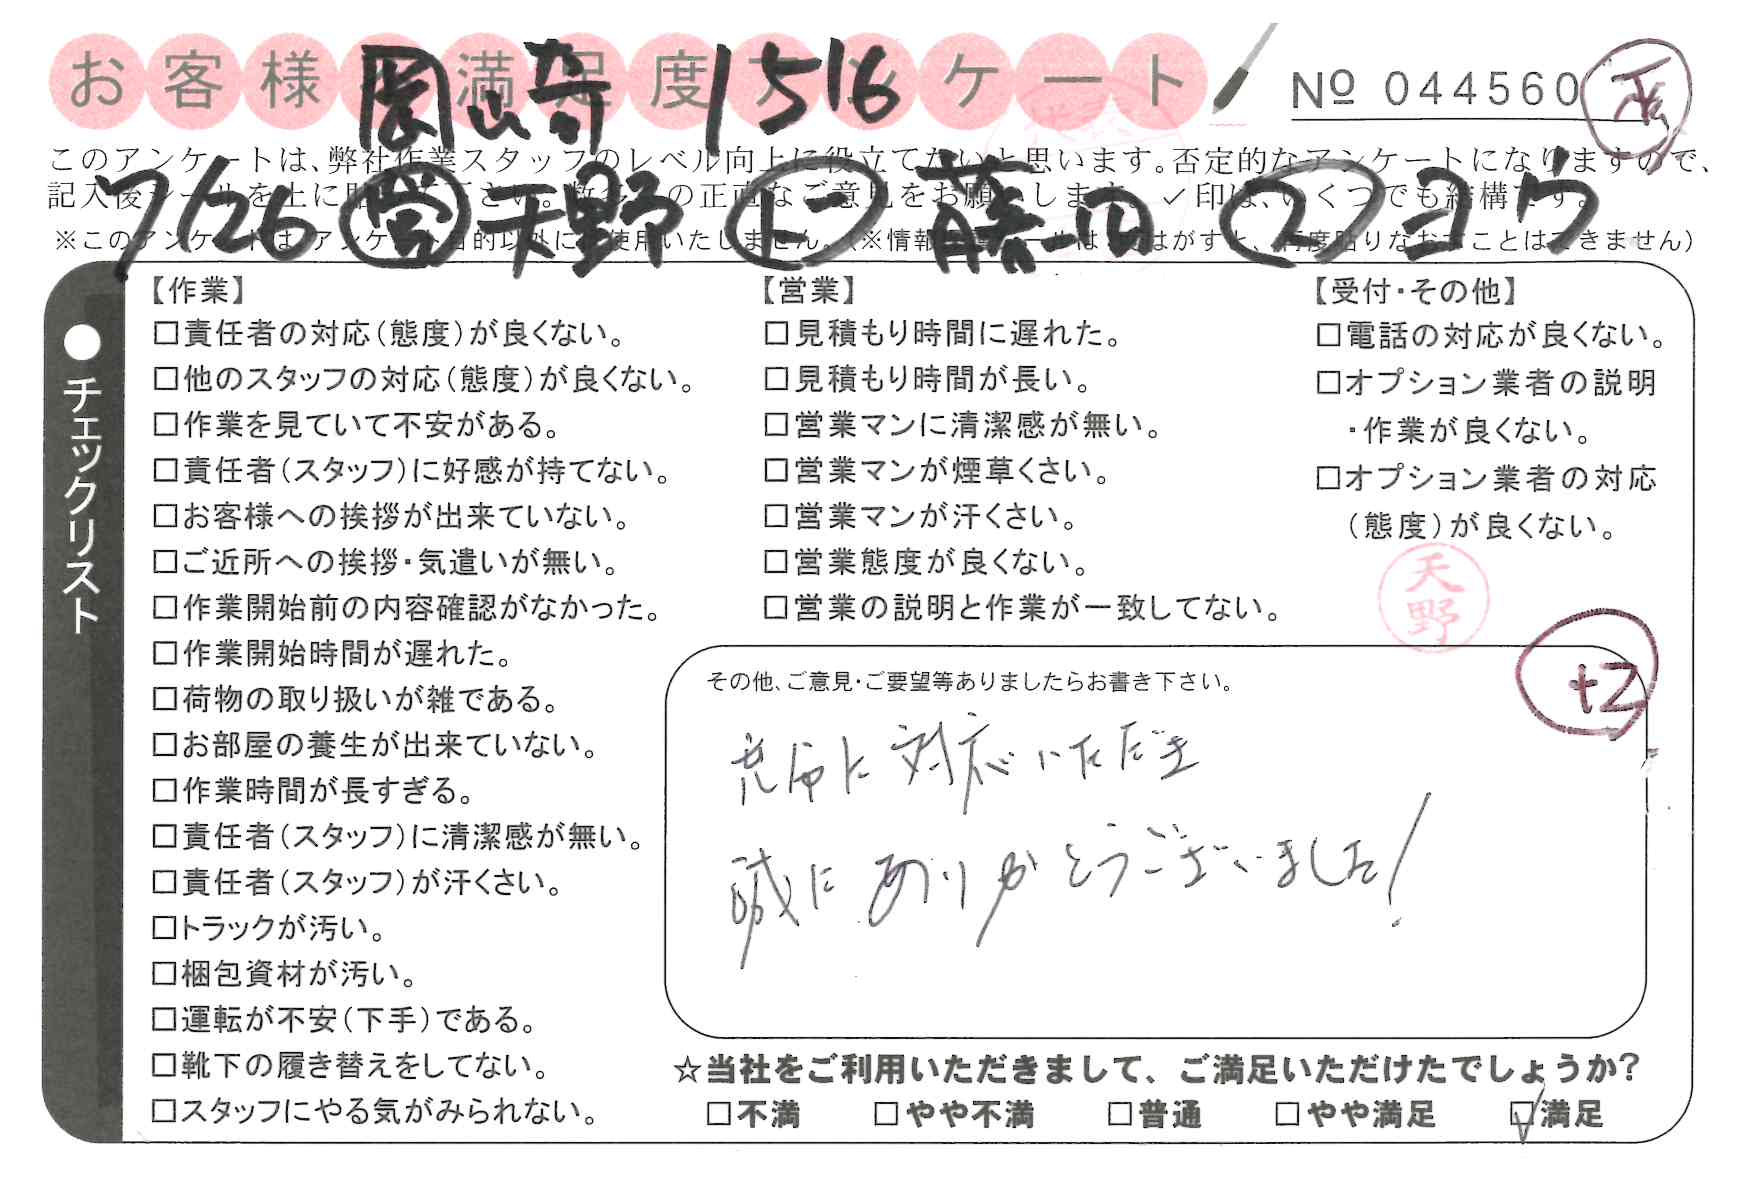 お客様 満足度アンケート
岡崎 1516
No 044560
このアンケートは、弊社作業スタッフのレベル向上に役立てたいと思います。否定的なアンケートになりますので、
記入後シールを上に貼って下さい。数多くの正直なご意見をお願いします。✓印は、いくつでも結構です。
7/26 営 天野 上 藤田 2 ヨウ
※このアンケートは、アンケート目的以外には使用いたしません。(※情報保護シールは一度はがすと、再度貼りなおすことはできません)
●チェックリスト
【作業】
□責任者の対応(態度)が良くない。
□他のスタッフの対応(態度)が良くない。
□作業を見ていて不安がある。
□責任者(スタッフ)に好感が持てない。
□お客様への挨拶が出来ていない。
□ご近所への挨拶・気遣いが無い。
□作業開始前の内容確認がなかった。
□作業開始時間が遅れた。
□荷物の取り扱いが雑である。
□お部屋の養生が出来ていない。
□作業時間が長すぎる。
□責任者(スタッフ)に清潔感が無い。
□責任者(スタッフ)が汗くさい。
□トラックが汚い。
□梱包資材が汚い。
□運転が不安(下手)である。
□靴下の履き替えをしてない。
□スタッフにやる気がみられない。
【営業】
□見積もり時間に遅れた。
□見積もり時間が長い。
□営業マンに清潔感が無い。
□営業マンが煙草くさい。
□営業マンが汗くさい。
□営業態度が良くない。
□営業の説明と作業が一致してない。
【受付・その他】
□電話の対応が良くない。
□オプション業者の説明
・作業が良くない。
□オプション業者の対応
(態度)が良くない。
天野
+2
その他、ご意見・ご要望等ありましたらお書き下さい。
対応いただき
誠にありがとうございました!
☆当社をご利用いただきまして、ご満足いただけたでしょうか?
□不満 □やや不満 □普通 □やや満足 ☑満足